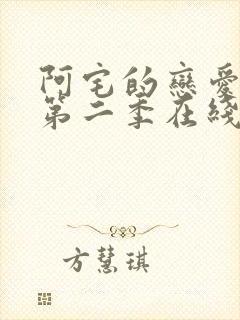 阿宅的戀愛
第二季在綫
方慧琪